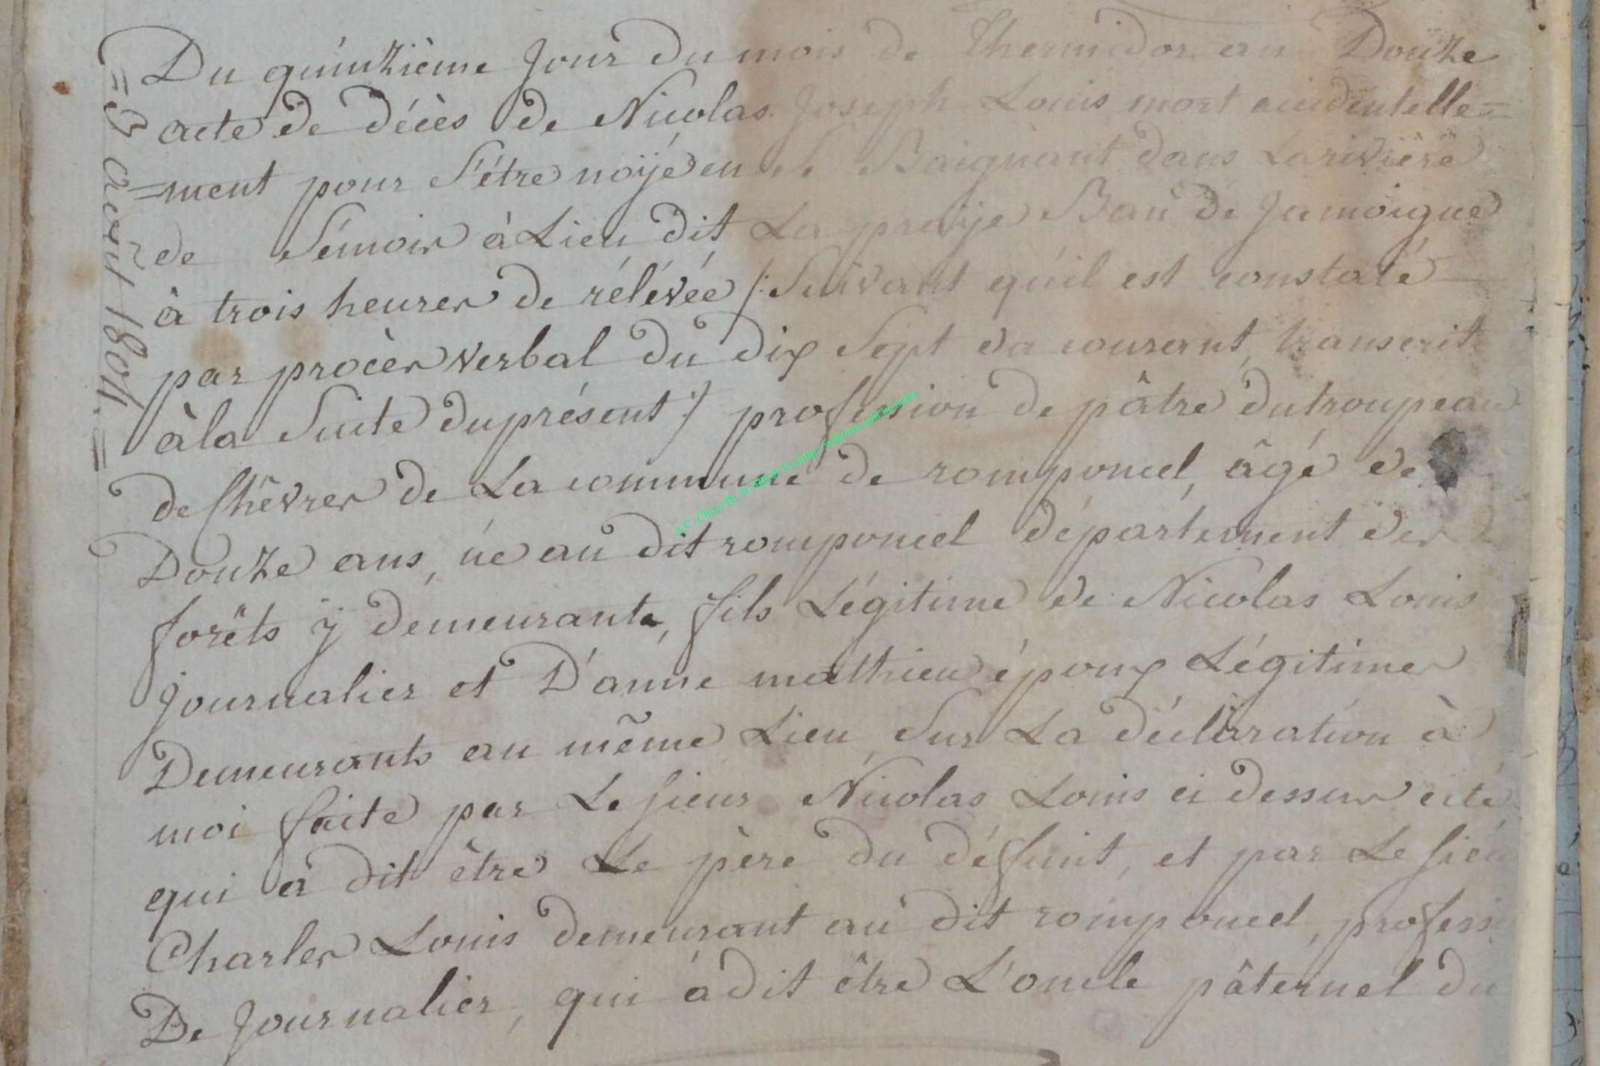 Du quinzième Jour du mois de Thermidor an Douze
acte de décès de Nicolas Joseph Louis mort accidentelle=
=ment pour S'être noÿé en se Baignant dans La rivière
de Sémoir à Lieu dit La praÿe Ban de Jamoigne
à trois heures de rélévée /: Suivant qu'il est constaté
par procès verbal du dix Sept du courant, transcrit
à la Suite du présent :/ profession de pâtre du troupeau
de Chêvres de La commune de romponcel, âgé de
Douze ans, né au dit romponcel département des
forêts ÿ demeurant, fils Légitime de Nicolas Louis
journalier et D'anne mathieu époux Légitimes
Demeurants au même Lieu, Sur La déclaration à
moi faite par Le sieur Nicolas Louis ci dessus cité
qui à dit être Le père du défunt, et par Le sieu
Charles Louis demeurant au dit romponcel, professi
De Journalier, qui à dit être L'oncle pâternel du
=3 août 1804.=